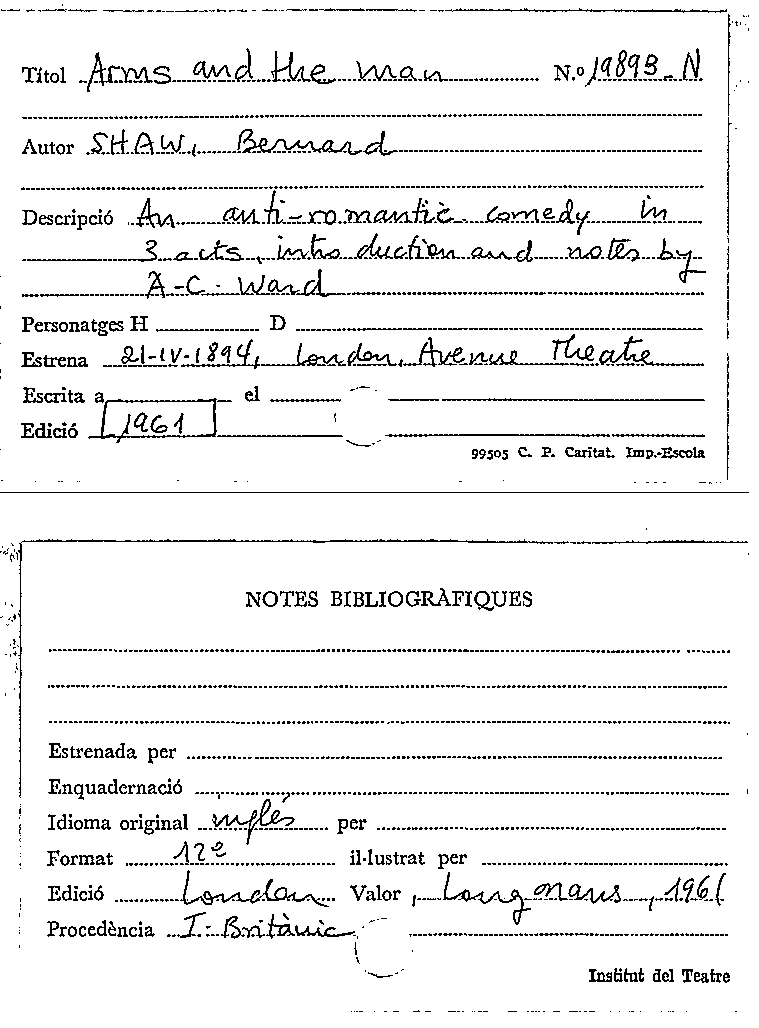 Títol Arms and the man N.º 19893-N
Autor SHAW, Bernard
Descripció An anti-romantic comedy in
3 acts, introduction and notes by
A-C. Ward
Personatges H D
Estrena 21-IV-1894, London, Avenue Theatre
Escrita a el
Edició [1961]
99505 C. P. Caritat. Imp.-Escola
NOTES BIBLIOGRÀFIQUES
Estrenada per
Enquadernació
Idioma original inglés per
Format 12º il·lustrat per
Edició London Valor, Longmans, 1961
Procedència I. Britànic
Institut del Teatre